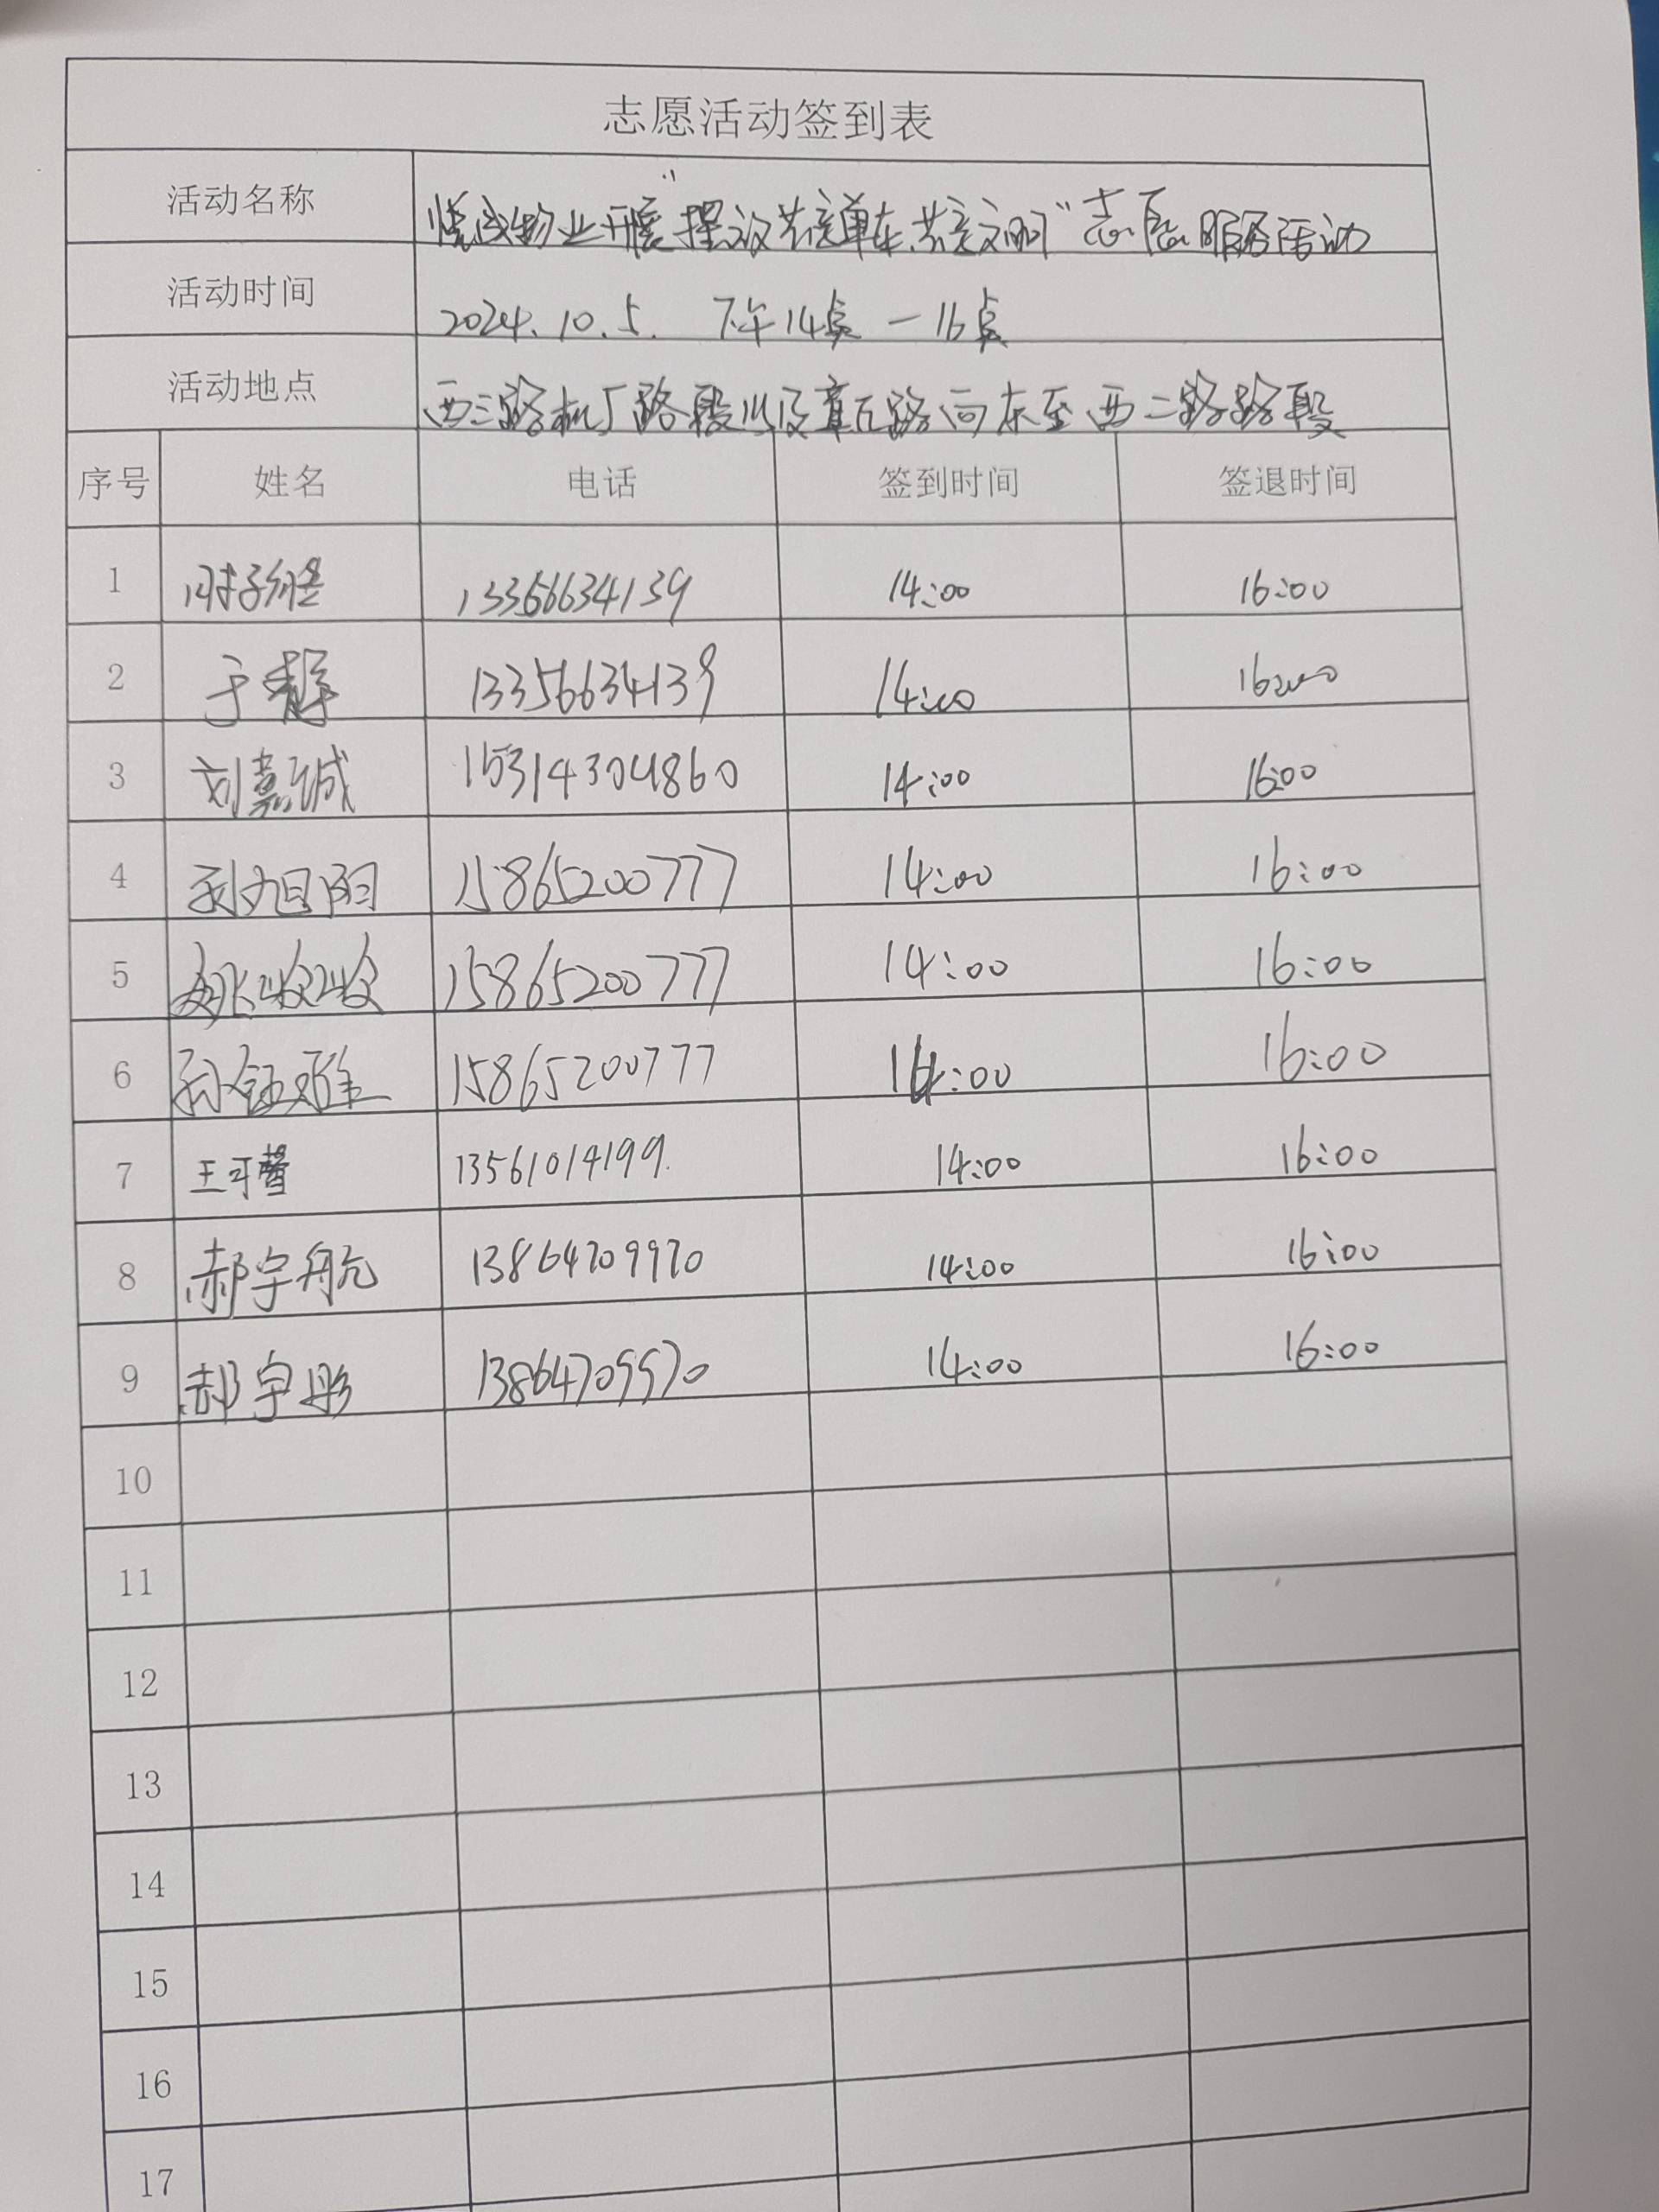 志愿活动签到表
活动名称 悦诚物业开展"摆放共享单车、共享文明"志愿服务活动
活动时间 2024.10.5. 下午14点—16点
活动地点 西三路机厂路段以及章丘路向东至西二路路段
序号 姓名 电话 签到时间 签退时间
1 13356634139 14:00 16:00
2 于静 13356634139 14:00 16:00
3 刘嘉诚 15314304860 14:00 16:00
4 孙旭阳 15865200777 14:00 16:00
5 姚姣姣 15865200777 14:00 16:00
6 孙钰雅 15865200777 14:00 16:00
7 王可馨 13561014199. 14:00 16:00
8 郝宇航 13864709970 14:00 16:00
9 郝宇彤 13864709970 14:00 16:00
10
11
12
13
14
15
16
17